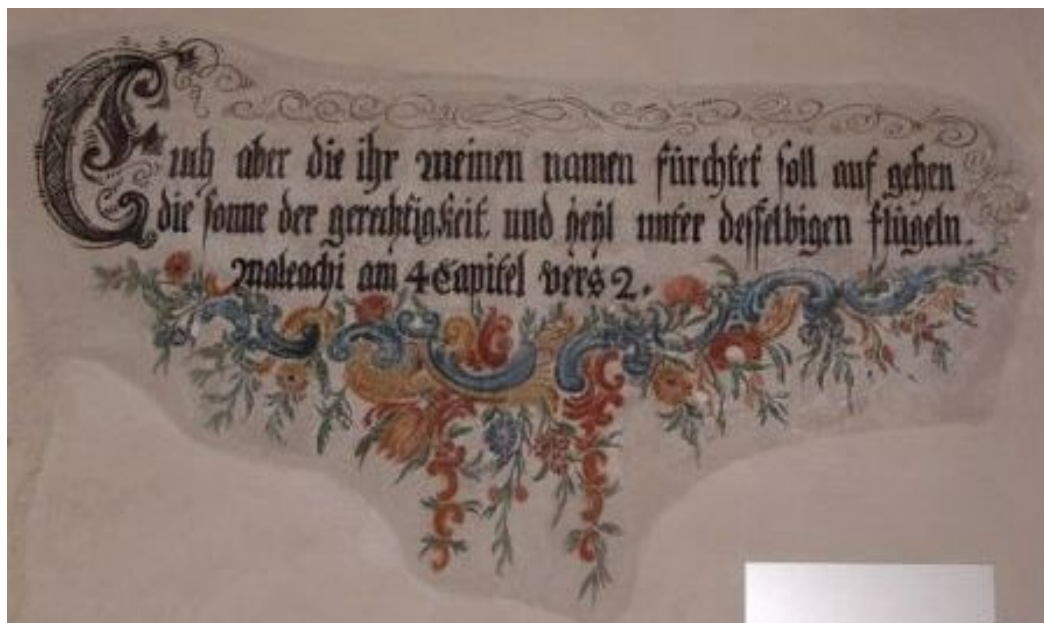 Euch aber die ihr meinen namen fürchtet soll auf gehen
die sonne der gerechtigkeit. und heyl unter desselbigen flügeln.
Maleachi am 4 Capitel vers 2.